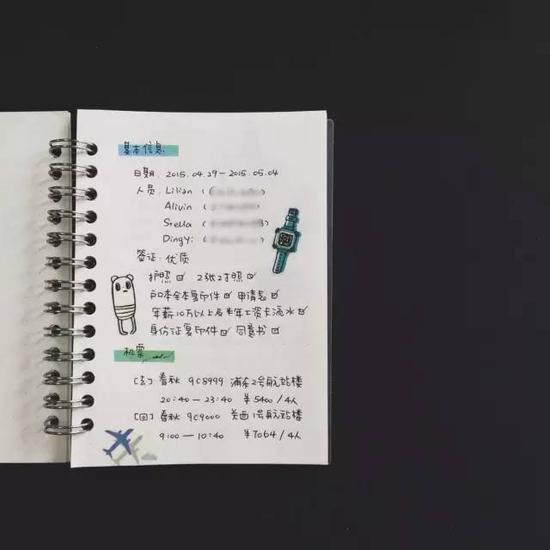 基本信息
日期: 2015.04.29-2015.05.04
人员: Lilian (
Alivin (
Stella (
Dingyi (
签证: 优质
护照☑ 2张2寸照☑
户口本全本复印件☑ 申请表☑
年薪10万以上 半年工资卡流水☑
身份证复印件☑ 同意书☑
机票
(去) 春秋 9C8999 浦东2号航站楼
20:40-23:40 ¥5400/4人
(回) 春秋 9C9000 关西1号航站楼
9:00-10:40 ¥7064/4人